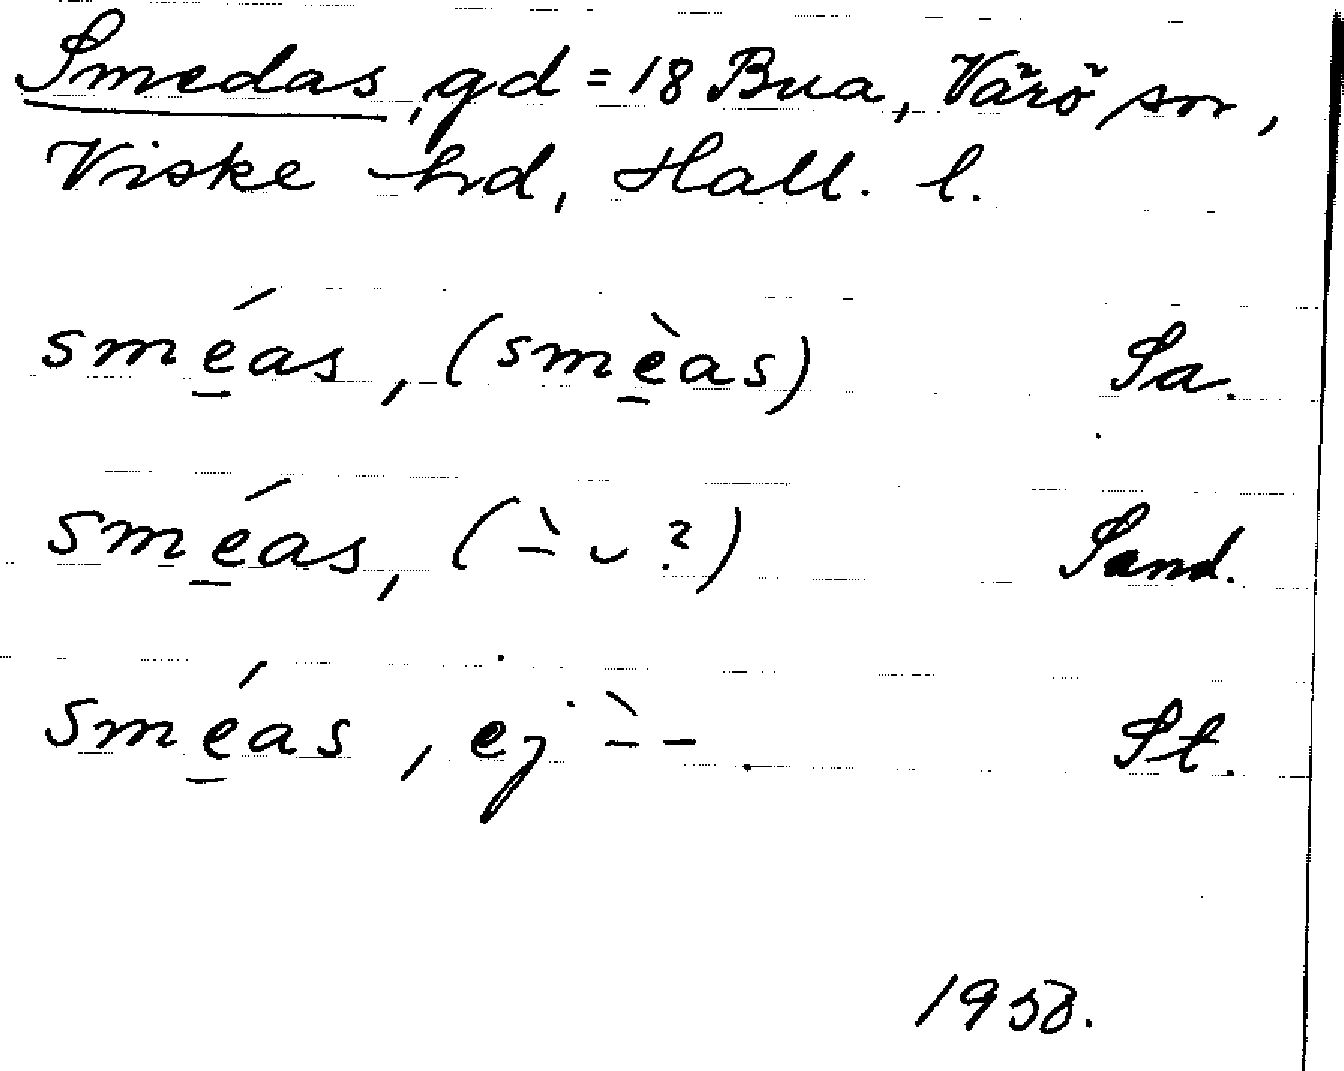 Smedas, gd = 18 Bua, Värö sn,
Viske hd, Hall. l.
smé̱as, (smè̱as) Sa.
smé̱as, (-̀ ᴗ ?) Sand.
smé̱as, ej -̀ - . St.
1958.